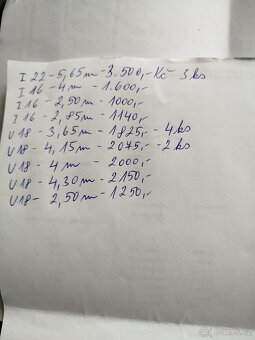 I 22 - 5,65m - 3.500,- Kč 3 ks
I 16 - 4m - 1.600,-
I 16 - 2,50m - 1000,-
I 16 - 2,85m - 1140,-
U 18 - 3,65m - 1825,- - 4 ks
U18 - 4,15m - 2075,- - 2 ks
U18 - 4m - 2000,-
U18 - 4,30m - 2150,-
U18 - 2,50m - 1250,-